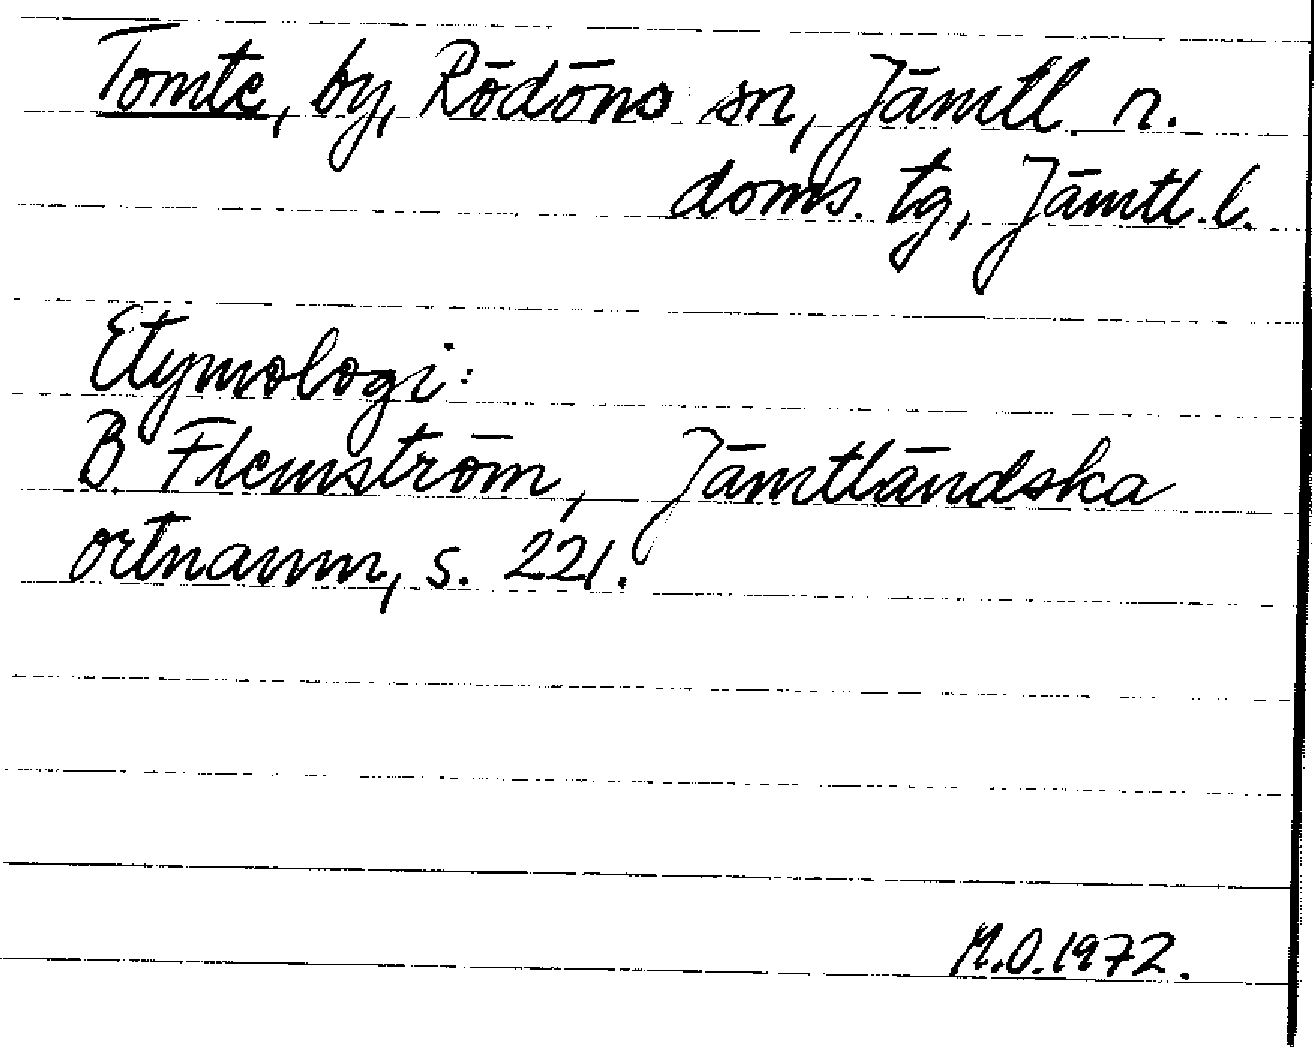 Tomte, by, Rödöns sn, Jämtl. n.
doms. tg, Jämtl. l.
Etymologi:
B. Flemström, Jämtländska
ortnamn, s. 221.
M.O. 1972.